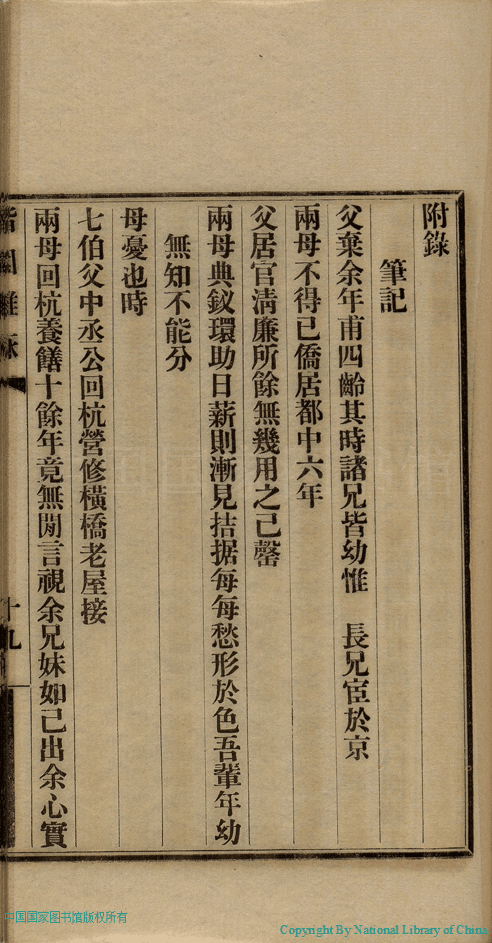 附錄
筆記
父棄余年甫四齡其時諸兄皆幼惟　長兄宦於京
兩母不得已僑居都中六年
父居官淸廉所餘無幾用之已罄
兩母典釵環助日薪則漸見拮据每每愁形於色吾輩年幼
無知不能分
母憂也時
七伯父中丞公回杭營修橫橋老屋接
兩母回杭養饍十餘年竟無閒言視余兄妹如己出余心實
十九
中国国家图书馆版权所有
Copyright By National Library of China